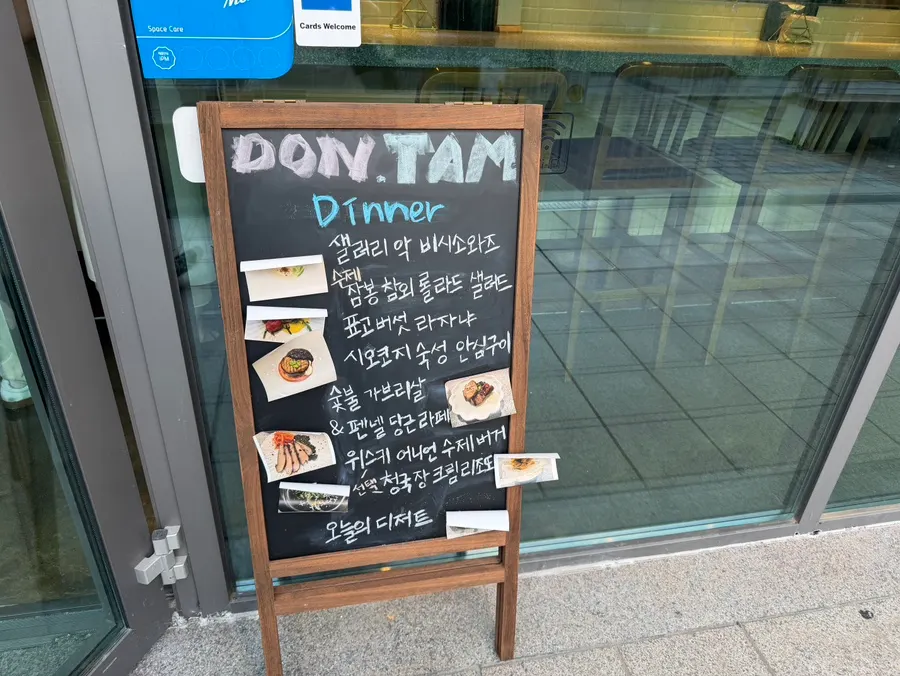 Space Care
Cards Welcome
DON.TAM
Dinner
샐러리 악 비시소와즈
수제
잠봉 참외 롤라드 샐러드
표고버섯 라자냐
시오코지 숙성 안심구이
숯불 가브리살
& 펜넬 당근 라페
위스키 어니언 수제 버거
선택 청국장 크림 리조또
오늘의 디저트